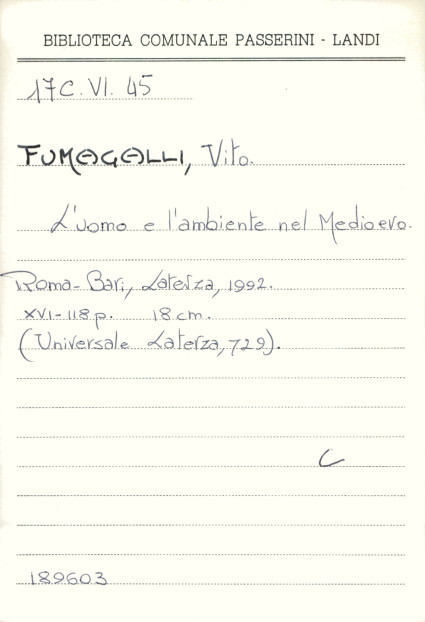 BIBLIOTECA COMUNALE PASSERINI - LANDI
17C. VI. 45
FUMAGALLI, Vito.
L'uomo e l'ambiente nel Medioevo.
Roma-Bari, Laterza, 1992.
XVI-118 p. 18 cm.
(Universale Laterza, 729).
C
189603